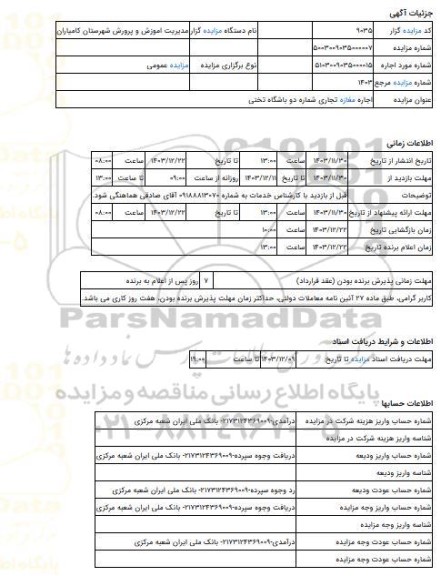 جزئیات آگهی
کد مزایده گزار ۹۰۳۵ نام دستگاه مزایده گزار مدیریت اموزش و پرورش شهرستان کامیاران
شماره مزایده ۵۰۰۳۰۰۹۰۳۵۰۰۰۰۰۷
شماره مورد اجاره ۵۱۰۳۰۰۹۰۳۵۰۰۰۰۱۵ نوع برگزاری مزایده مزایده عمومی
شماره مزایده مرجع ۱۴۰۳
عنوان مزایده اجاره مغازه تجاری شماره دو باشگاه تختی
اطلاعات زمانی
تاریخ انتشار از تاریخ ۱۴۰۳/۱۱/۳۰ ساعت ۱۳:۰۰ تا تاریخ ۱۴۰۳/۱۲/۲۲ ساعت ۰۸:۰۰
مهلت بازدید از ۱۴۰۳/۱۱/۳۰ تا تاریخ ۱۴۰۳/۱۲/۱۱ روزانه از ساعت ۰۹:۰۰ تا ساعت ۱۳:۰۰
توضیحات قبل از بازدید با کارشناس خدمات به شماره ۰۹۱۸۸۸۱۳۰۷۰ آقای صادقی هماهنگی شود.
مهلت ارائه پیشنهاد از تاریخ ۱۴۰۳/۱۱/۳۰ ساعت ۱۳:۰۰ تا تاریخ ۱۴۰۳/۱۲/۲۲ ساعت ۰۸:۰۰
زمان بازگشایی تاریخ ۱۴۰۳/۱۲/۲۲ ساعت ۱۰:۰۰
زمان اعلام برنده تاریخ ۱۴۰۳/۱۲/۲۲ ساعت ۱۳:۰۰
مهلت زمانی پذیرش برنده بودن (عقد قرارداد) ۷ روز پس از اعلام به برنده
کاربر گرامی، طبق ماده ۲۷ آئین نامه معاملات دولتی، حداکثر زمان مهلت پذیرش برنده بودن، هفت روز کاری می باشد.
ParsNamadData
اطلاعات و شرایط دریافت اسناد
مهلت دریافت اسناد مزایده تا تاریخ ۱۴۰۳/۱۲/۰۹ تا ساعت ۱۹:۰۰
پایگاه اطلاع رسانی مناقصه و مزایده
اطلاعات حسابها
شماره حساب واریز هزینه شرکت در مزایده درآمدی-۲۱۷۳۱۲۴۳۶۹۰۰۹- بانک ملی ایران شعبه مرکزی
شناسه واریز هزینه شرکت در مزایده
شماره حساب واریز ودیعه دریافت وجوه سپرده-۲۱۷۳۱۲۴۳۶۹۰۰۹- بانک ملی ایران شعبه مرکزی
شناسه واریز ودیعه
شماره حساب عودت ودیعه رد وجوه سپرده-۲۱۷۳۱۲۴۳۶۹۰۰۹- بانک ملی ایران شعبه مرکزی
شماره حساب واریز وجه مزایده دریافت وجوه سپرده-۲۱۷۳۱۲۴۳۶۹۰۰۹- بانک ملی ایران شعبه مرکزی
شناسه واریز وجه مزایده
شماره حساب عودت وجه مزایده درآمدی-۲۱۷۳۱۲۴۳۶۹۰۰۹- بانک ملی ایران شعبه مرکزی
شماره حساب عودت وجه مزایده